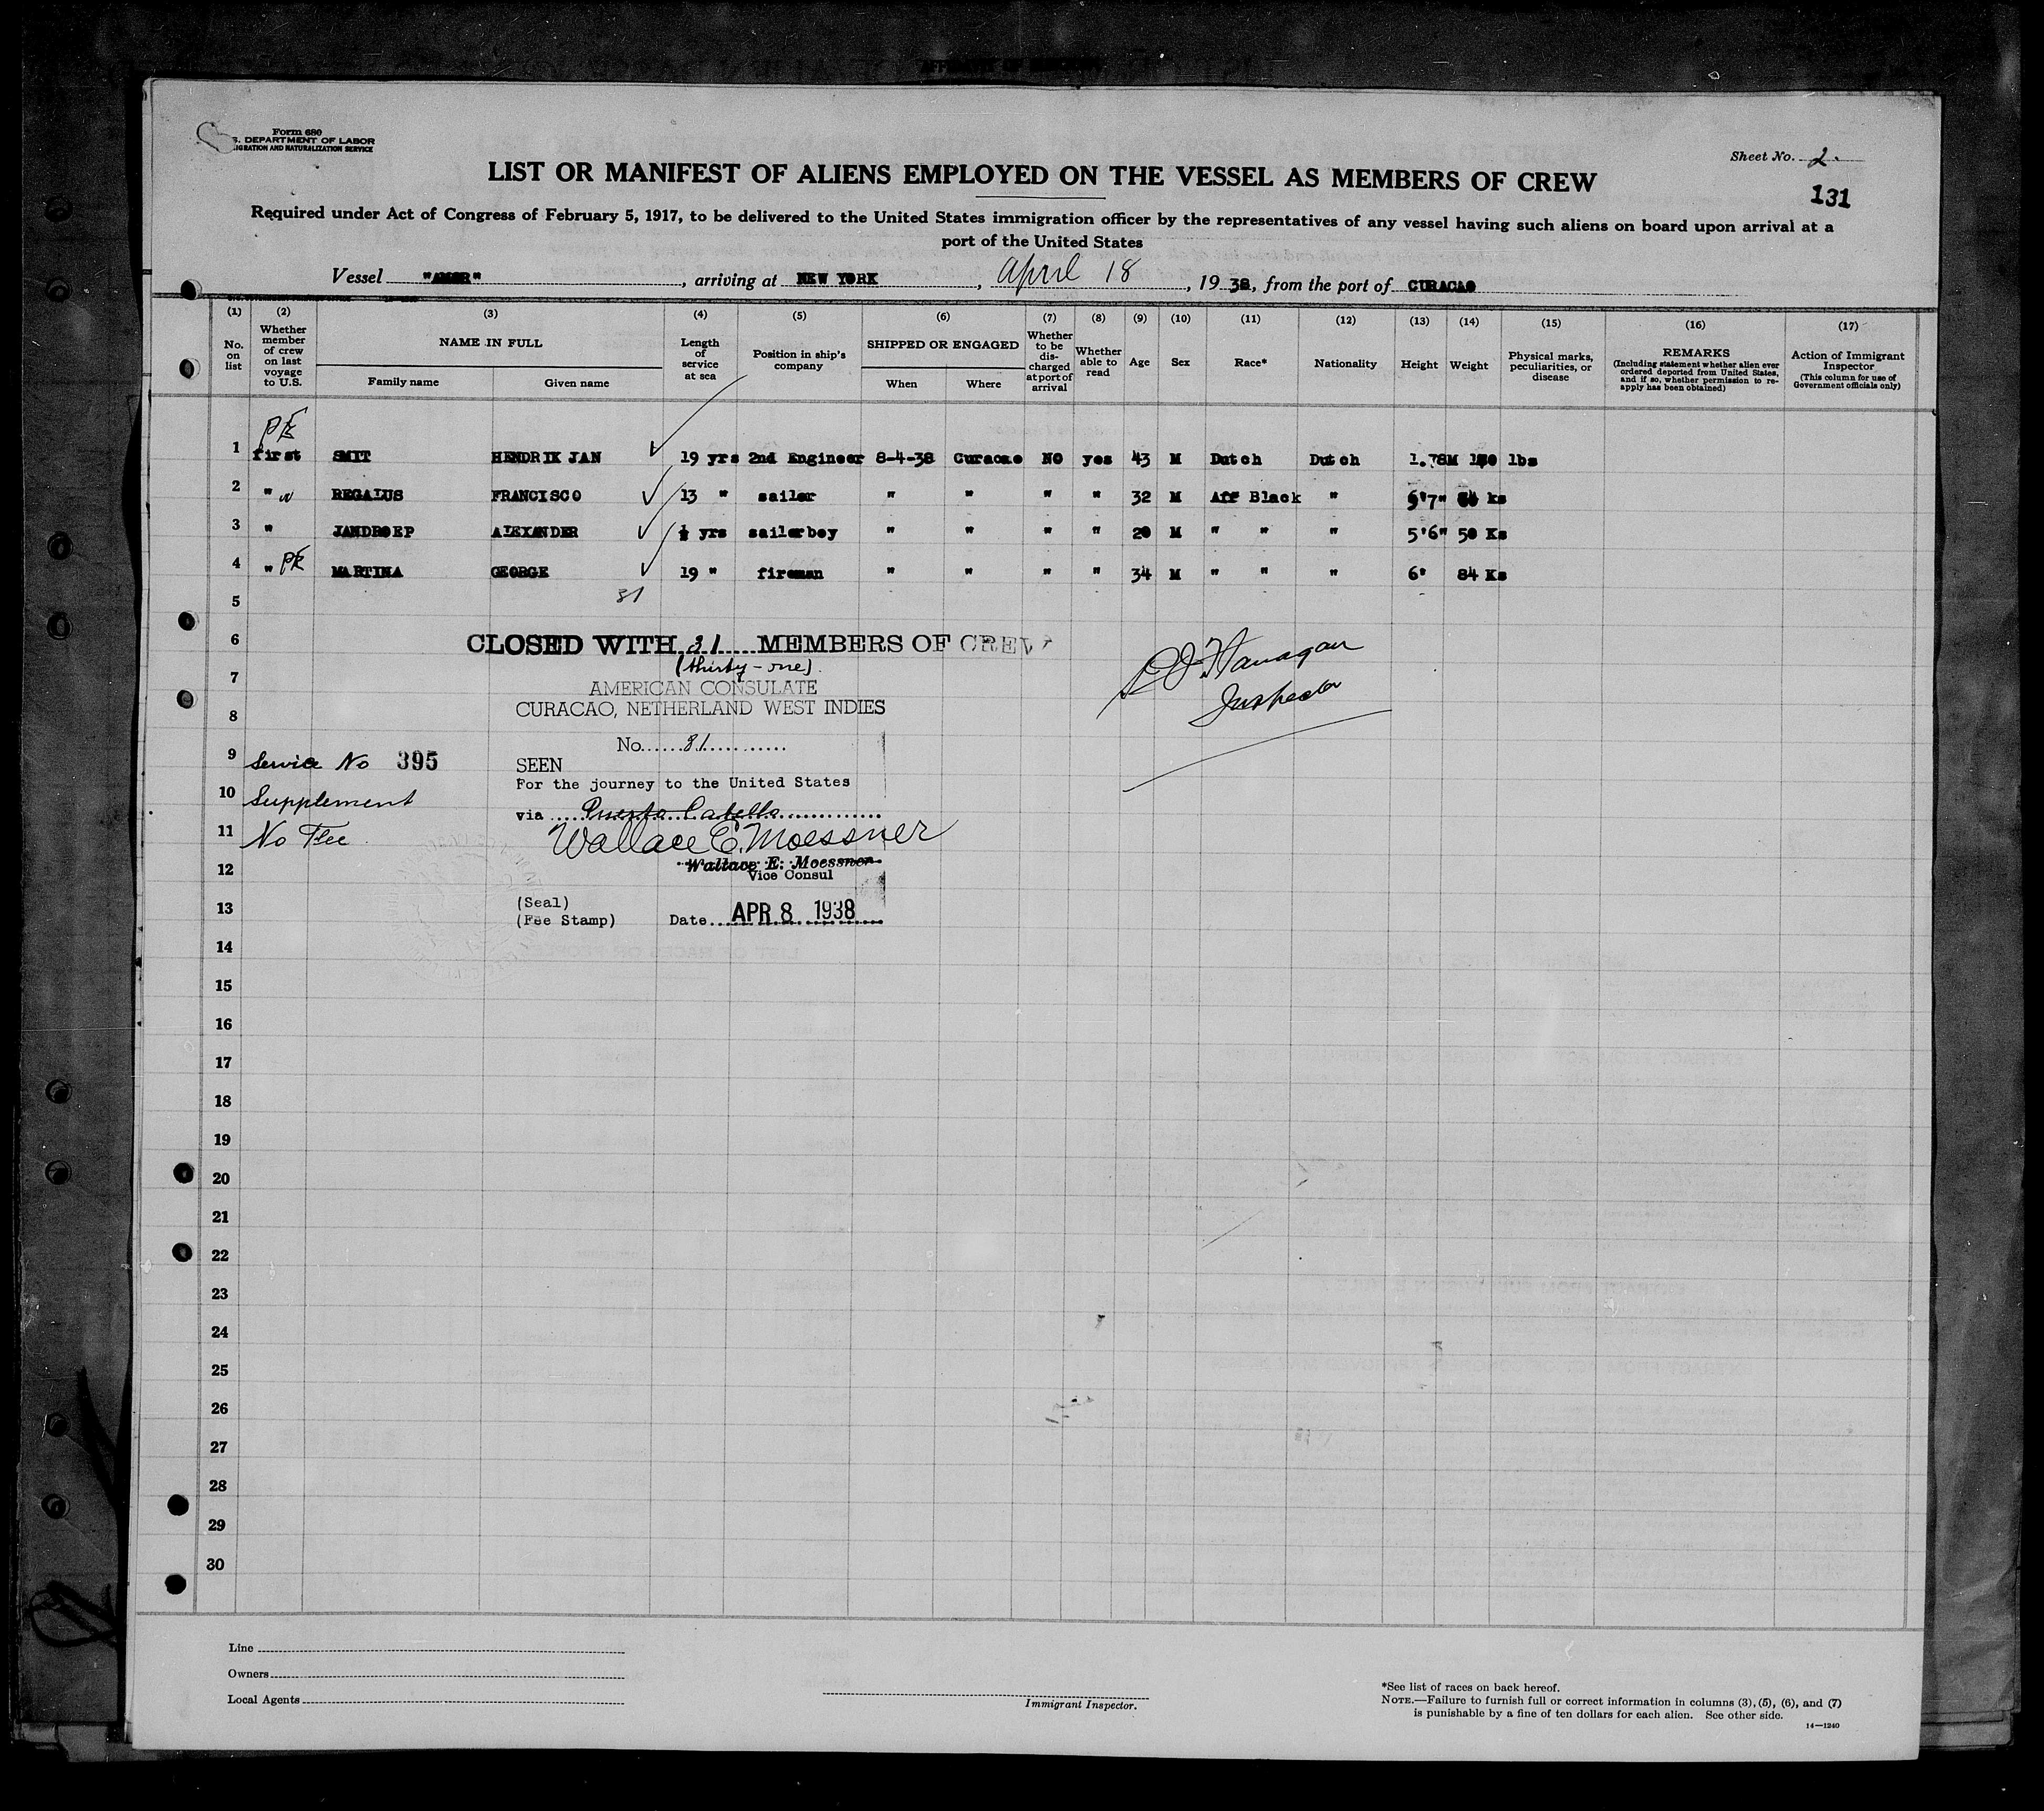 Form 680
S. DEPARTMENT OF LABOR
IGRATION AND NATURALIZATION SERVICE
Sheet No. 2.
131
LIST OR MANIFEST OF ALIENS EMPLOYED ON THE VESSEL AS MEMBERS OF CREW
Required under Act of Congress of February 5, 1917, to be delivered to the United States immigration officer by the representatives of any vessel having such aliens on board upon arrival at a
port of the United States
Vessel "AMOR", arriving at NEW YORK, April 18, 1938, from the port of CURACAO
(1) (2) (3) (4) (5) (6) (7) (8) (9) (10) (11) (12) (13) (14) (15) (16) (17)
No. on list
Whether member of crew on last voyage to U.S.
NAME IN FULL
Family name Given name
Length of service at sea
Position in ship's company
SHIPPED OR ENGAGED
When Where
Whether to be discharged at port of arrival
Whether able to read
Age
Sex
Race*
Nationality
Height
Weight
Physical marks, peculiarities, or disease
REMARKS
(Including statement whether alien ever ordered deported from United States, and if so, whether permission to re-apply has been obtained)
Action of Immigrant Inspector
(This column for use of Government officials only)
PE
1 first SMIT HENDRIK JAN 19 yrs 2nd Engineer 8-4-38 Curacao NO yes 43 M Dutch Dutch 1.78M lbs
2 " REGALUS FRANCISCO 13 " sailor " " " " 32 M Afr Black " 5'7" ks
3 " JANDROEP ALEXANDER ½ yrs sailorboy " " " " 20 M " " " 5'6" 50 Ks
4 " PE MARTINA GEORGE 19 " fireman " " " " 34 M " " " 6' 84 Ks
5
31
6 CLOSED WITH 31 MEMBERS OF CREW
(thirty-one)
7
AMERICAN CONSULATE
CURACAO, NETHERLAND WEST INDIES
8
Flanagan
Inspector
No. 31
9 Service No 395
SEEN
For the journey to the United States
10 Supplement
via Puerto Cabello
11 No Fee
Wallace E. Moessner
Wallace E. Moessner
12
Vice Consul
13
(Seal)
(Fee Stamp) Date APR 8 1938
14
15
16
17
18
19
20
21
22
23
24
25
26
27
28
29
30
Line
Owners
Local Agents
Immigrant Inspector.
*See list of races on back hereof.
NOTE.—Failure to furnish full or correct information in columns (3), (5), (6), and (7)
is punishable by a fine of ten dollars for each alien. See other side.
14—1240